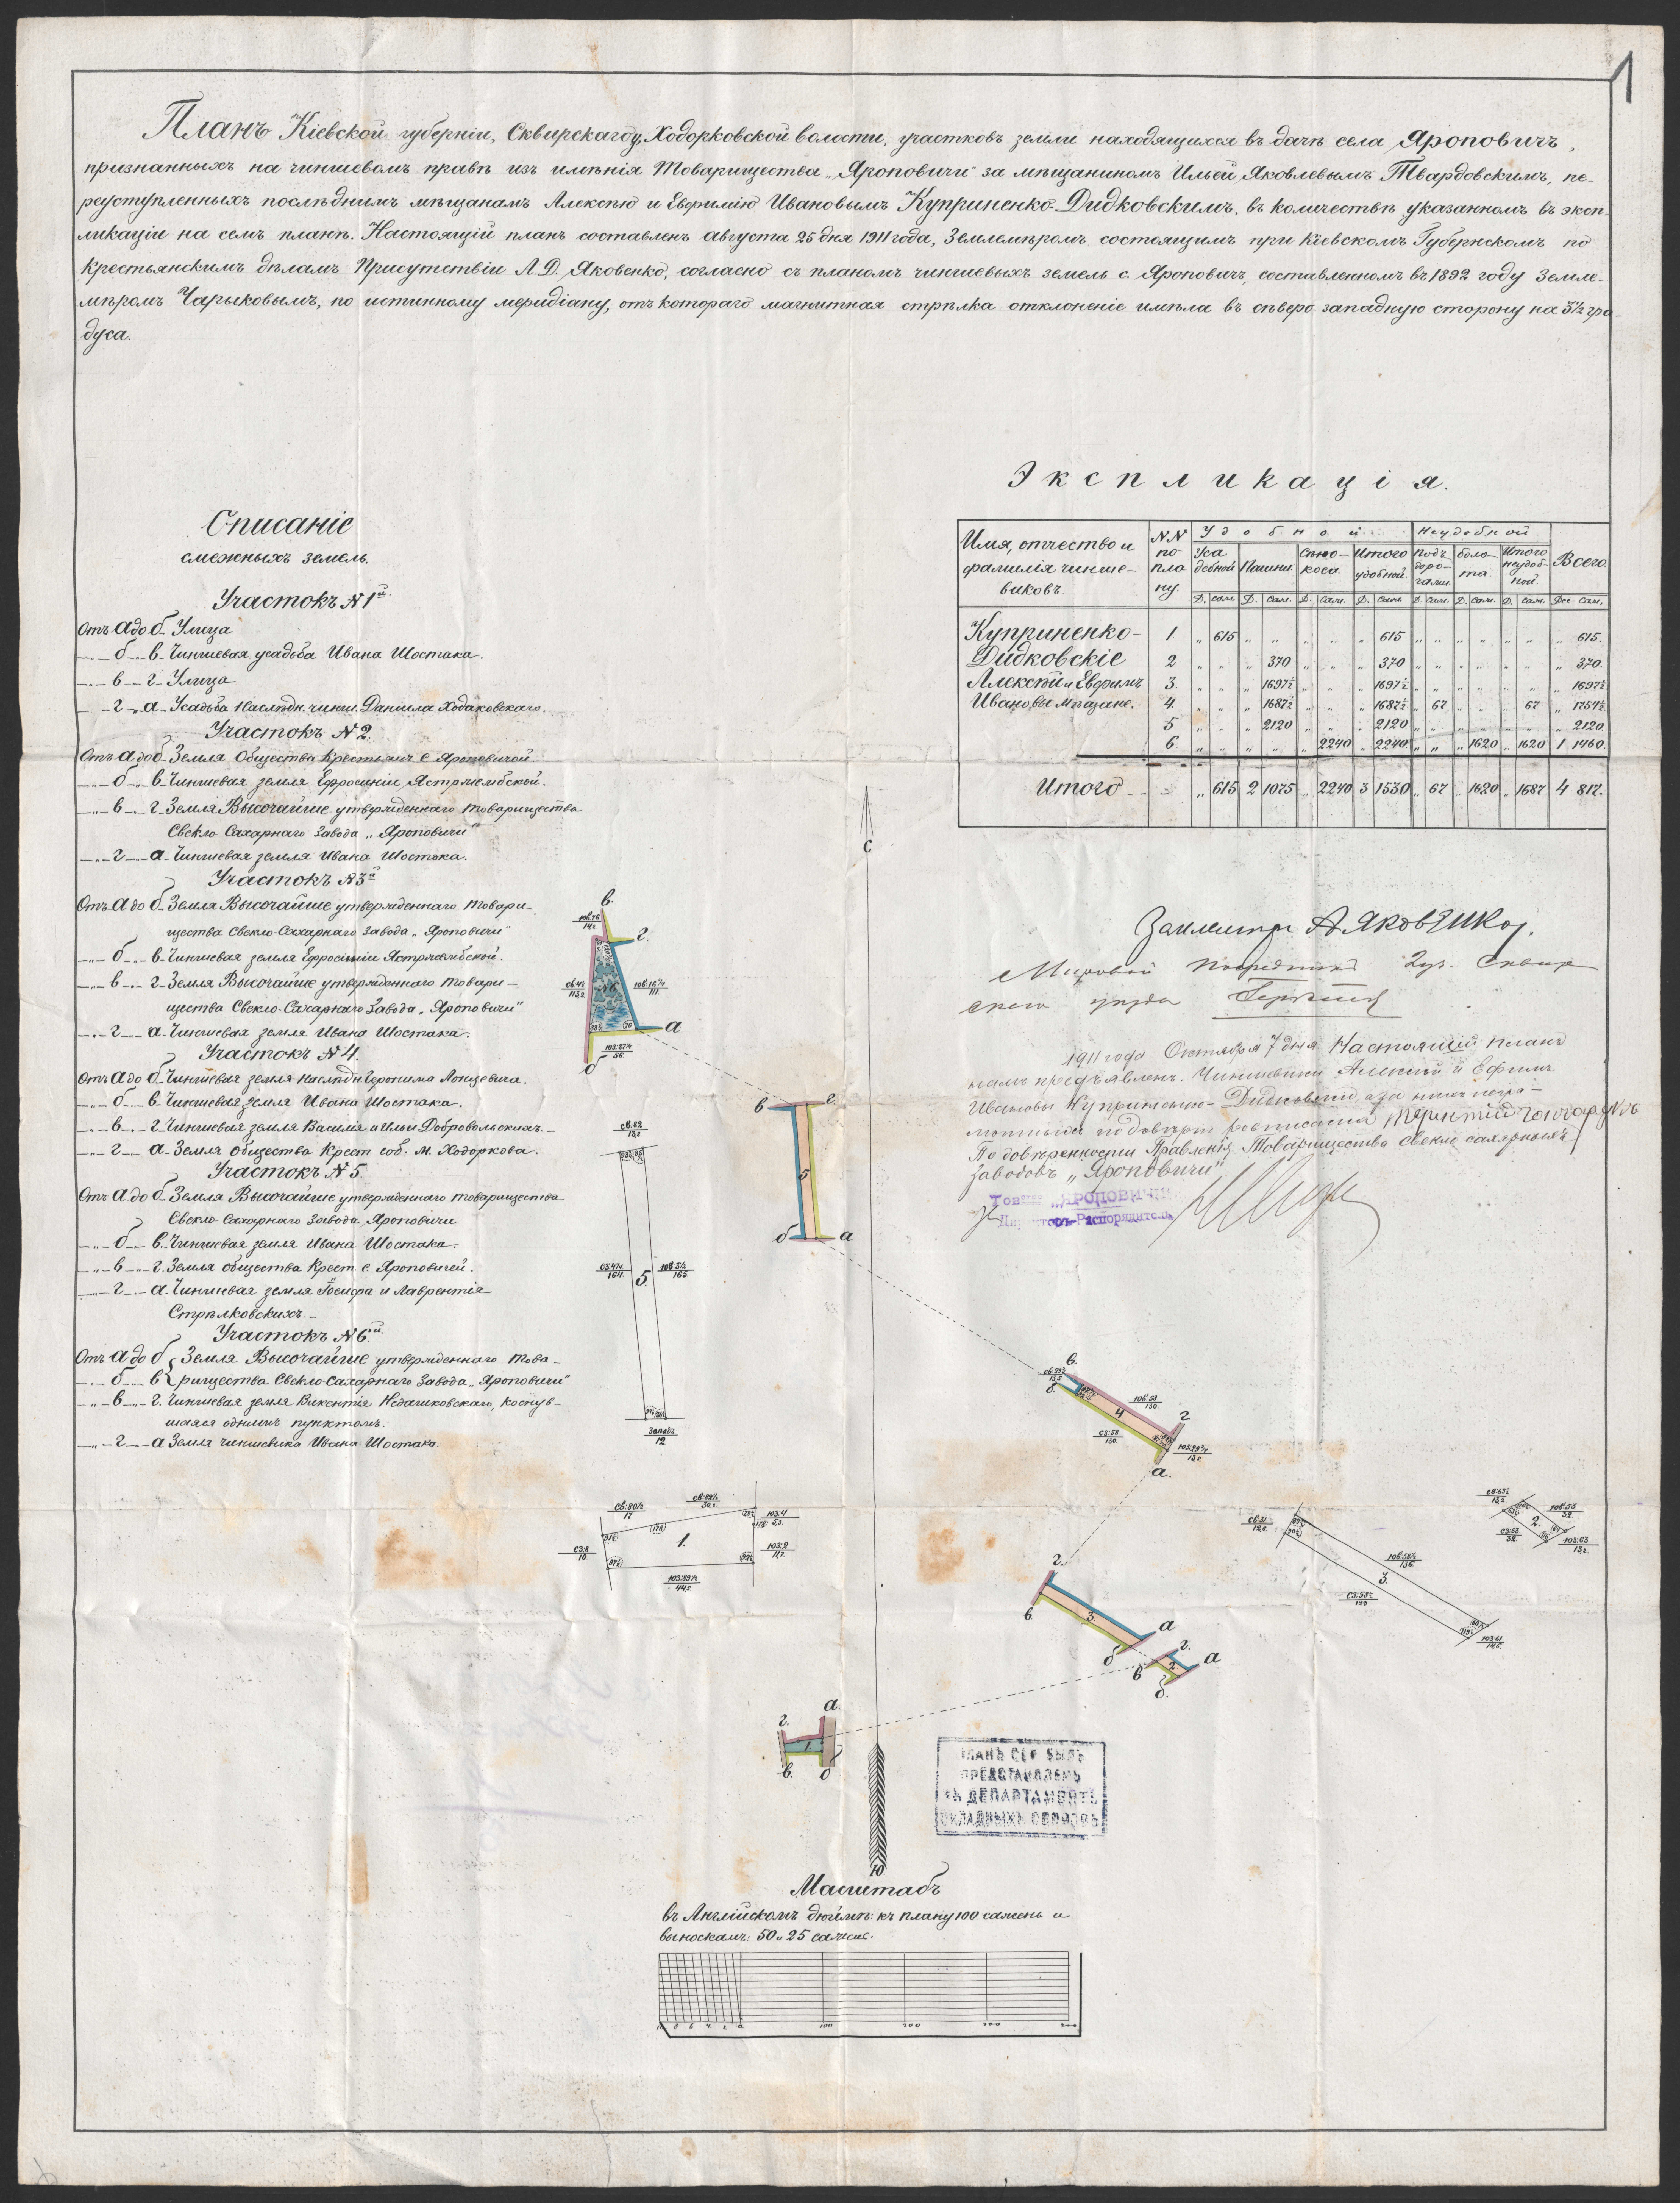 1
Планъ Кіевской губерніи, Сквирскаго у, Ходорковской волости, участковъ земли находящихся въ дачѣ села Яроповичъ,
признанныхъ на чиншевомъ правѣ изъ имѣнія Товарищества „Яроповичи" за мѣщаниномъ Ильей Яковлевымъ Твардовскимъ, пе-
реуступленныхъ послѣднимъ мѣщанамъ Алексѣю и Евфимію Ивановымъ Куприненко-Дидковскимъ, въ количествѣ указанномъ въ эксп-
ликаціи на семъ планѣ. Настоящій планъ составленъ августа 25 дня 1911 года, Землемѣромъ состоящимъ при Кіевскомъ Губернскомъ по
крестьянскимъ дѣламъ Присутствіи А. Д. Яковенко, согласно съ планомъ чиншевыхъ земель с. Яроповичъ, составленномъ въ 1892 году Земле-
мѣромъ Чарыковымъ, по истинному меридіану, отъ котораго магнитная стрѣлка отклоненіе имѣла въ сѣверо-западную сторону на 3½ гра-
дуса.
Описаніе
смежныхъ земель.
Участокъ №1й.
Отъ а до б Улица
—„— б — в. Чиншевая усадьба Ивана Шостака.
—„— в — г Улица
— г — а Усадьба наслѣдн. чинш. Даніила Ходаковскаго.
Участокъ №2.
Отъ а до б Земля Общества Крестьянъ с Яроповичей.
—„— б — в. Чиншевая земля Ефросиніи Ястржембской.
—„— в — г Земля Высочайше утвержденнаго товарищества
Свекло-Сахарнаго Завода „Яроповичи"
—„— г — а Чиншевая земля Ивана Шостака.
Участокъ №3й
Отъ а до б Земля Высочайше утвержденнаго товари-
щества Свекло-Сахарнаго Завода „Яроповичи"
—„— б — в Чиншевая земля Ефросиніи Ястржембской.
—„— в — г Земля Высочайше утвержденнаго товари-
щества Свекло-Сахарнаго Завода „Яроповичи"
—„— г — а. Чиншевая земля Ивана Шостака.
Участокъ №4.
Отъ а до б Чиншевая земля наслѣдн. Іеронима Лонцевича.
—„— б — в Чиншевая земля Ивана Шостака.
—„— в — г Чиншевая земля Василія и Ильи Добровольскихъ.
—„— г — а Земля общества Крест соб. м. Ходоркова.
Участокъ №5.
Отъ а до б Земля Высочайше утвержденнаго товарищества
Свекло-Сахарнаго Завода „Яроповичи
—„— б — в. Чиншевая земля Ивана Шостака.
—„— в — г. Земля общества Крест. с. Яроповичей.
— г — а. Чиншевая земля Іосифа и Лаврентія
Стрѣлковскихъ.
Участокъ №6й
Отъ а до б { Земля Высочайше утвержденнаго това-
—„— б — в { рищества Свекло-Сахарнаго Завода „Яроповичи"
—„— в — г. Чиншевая земля Викентія Недашковскаго, коснув-
шаяся однимъ пунктомъ.
—„— г — а Земля чиншевика Ивана Шостака.
Экспликація.
Имя, отчество и фамилія чинше-виковъ. №№ по пла ну. Удобной. Неудобной Всего.
Уса дебной Пашни. Сѣно-коса. Итого удобной. Подъ доро-гами. боло-та. Итого неудоб-ной.
Д. саж. Д. саж. Д. саж. Д. саж. Д. саж. Д. саж. Д. саж. Дес саж.
Куприненко- 1. „ 615 „ „ „ „ „ 615 „ „ „ „ „ „ „ 615.
Дидковскіе 2 „ „ „ 370 „ „ „ 370 „ „ „ „ „ „ „ 370.
Алексѣй и Евфимъ 3. „ „ „ 1697½ „ „ „ 1697½ „ „ „ „ „ „ „ 1697½
Ивановы мѣщане. 4. „ „ „ 1687½ „ „ „ 1687½ „ 67 „ „ „ 67 „ 1754½
5 „ „ „ 2120 „ „ „ 2120 „ „ „ „ „ „ „ 2120.
6. „ „ „ „ „ 2240 „ 2240 „ „ „ 1620 „ 1620 1 1460.
Итого „ 615 2 1075 „ 2240 3 1530 „ 67 „ 1620 „ 1687 4 817.
Землемѣръ А Яковенко.
Мировой Посредникъ 2 уч. Сквир
скаго уѣзда
1911 года Октября 7 дня Настоящій планъ
намъ предъявленъ. Чиншевики Алексѣй и Ефимъ
Ивановы Куприненко-Дидковскіе, а за нихъ негра-
мотныхъ по довѣрію росписался
По довѣренности Правленія Товарищества свекло-сахарныхъ
заводовъ „Яроповичи"
Товар „ЯРОПОВИЧИ"
Директоръ-Распорядитель
С
в.
г.
№6
а
б
в г.
5
б а
5.
Западъ
12
в.
б.
4
г
а.
1.
2.
3.
г.
в.
3.
а
б
г.
в
2
а
б.
а.
г.
1.
в. б
Ю.
ПЛАНЪ СЕЙ БЫЛЪ
ПРЕДСТАВЛЕНЪ
ВЪ ДЕПАРТАМЕНТЪ
ОКЛАДНЫХЪ СБОРОВЪ
Масштабъ
въ Англійскомъ дюймѣ: къ плану 100 сажень и
выноскамъ: 50 и 25 сажень.
10 8 6 4 2 0 100 200 300 400